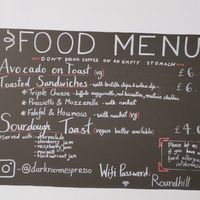 FOOD MENU
DON'T DRINK COFFEE ON AN EMPTY STOMACH
Avocado on Toast (vg) £6
Toasted Sandwiches - with tortilla chips & salsa dip £6.
* Triple Cheese - buffalo mozzarella, red leicester, mature cheddar
* Prosciutto & Mozzarella - with rocket
* Falafel & Houmous - with rocket (vg)
Sourdough Toast (vegan butter available) £4.
Served with: - marmalade
- strawberry jam
- raspberry jam
- marmite
- blackcurrant jam
Please let us
if you have
food allergies
intoleranc
@darkroomespresso
Wifi Password:
Roundhill